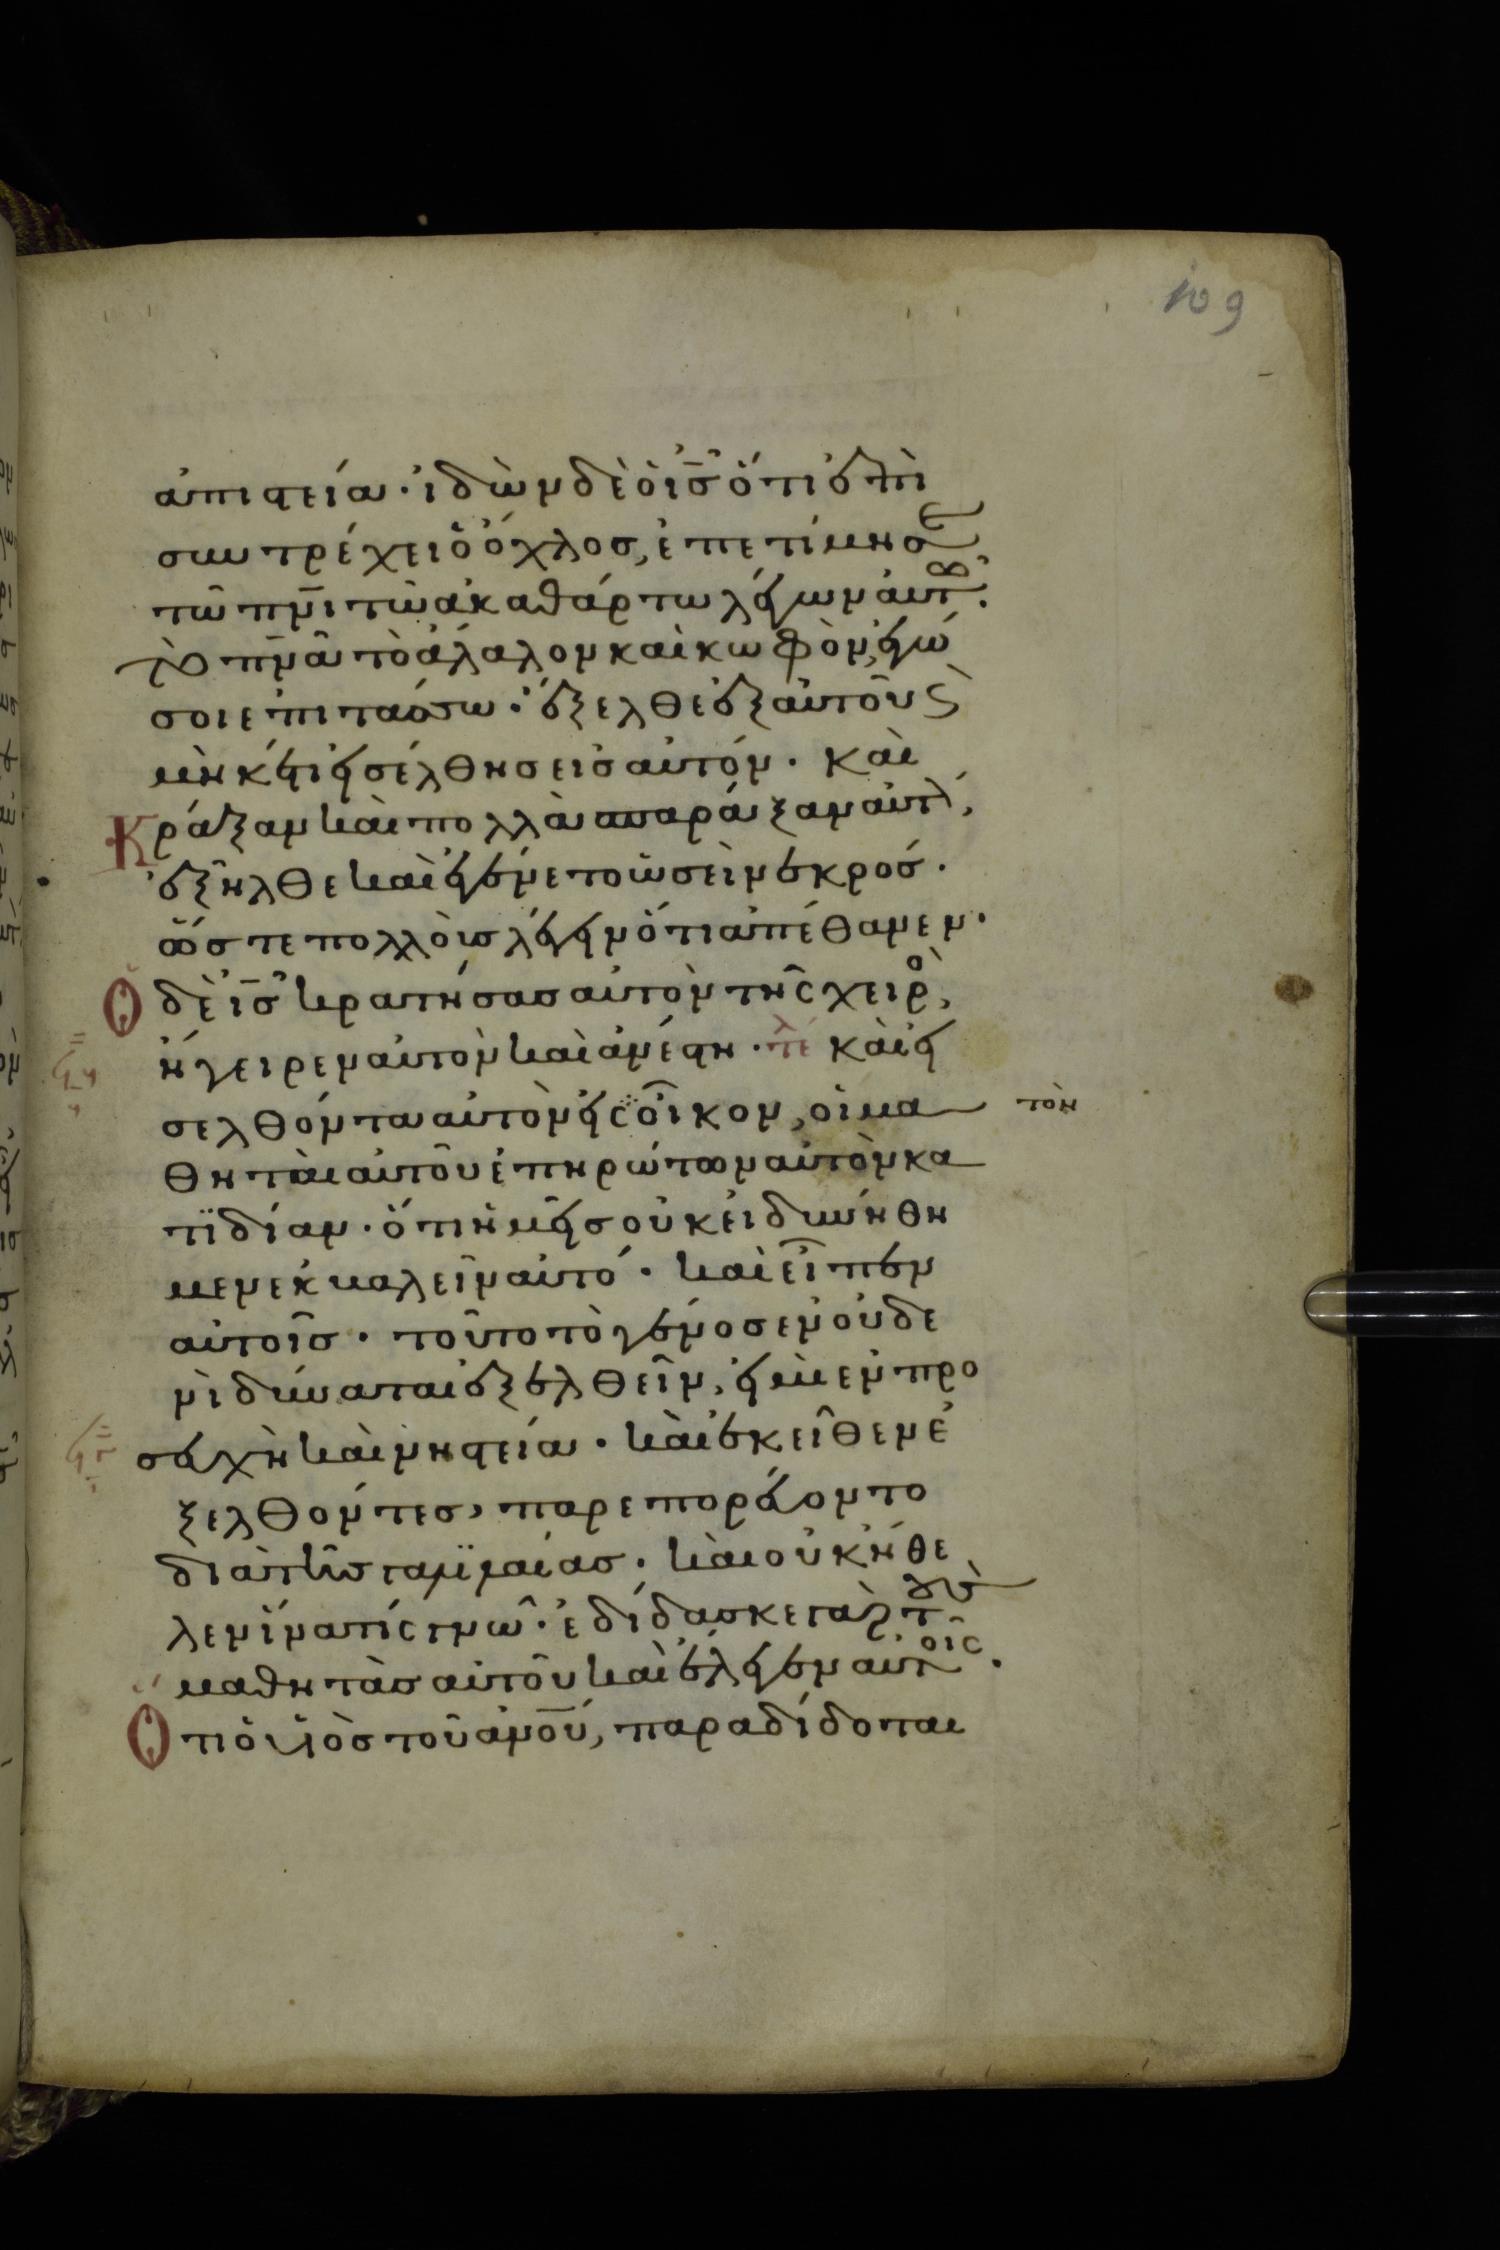 109
ἀπιστεία· ἰδὼν δὲ ὁ ις ὅτι ἐπι
συντρέχει ὁ ὄχλος, ἐπετίμησε
τῶ πνι τῶ ἀκαθάρτω λέγων αὐτω·
τὸ πνα τὸ ἄλαλον καὶ κωφὸν, ἐγώ
σοι ἐπιτάσσω· ἔξελθε ἐξ αὐτοῦ ϗ
μηκέτι εἰσέλθης εἰς αὐτόν· καὶ
Κράξαν καὶ πολλὰ σπαράξαν αὐτὸν,
ἐξῆλθε καὶ ἐγένετο ὡσεὶ νεκρός·
ὥστε πολλοὺς λέγειν ὅτι ἀπέθανεν·
Ὁ δὲ ις κρατήσας αὐτὸν τῆς χειρὸς,
ἤγειρεν αὐτὸν καὶ ἀνέστη· τέλ καὶ εἰ
σελθόντα αὐτὸν εἰς οἶκον, οἱ μα τὸν
θηταὶ αὐτοῦ ἐπηρώτων αὐτὸν κα
τϊδίαν· ὅτι ἡμεῖς οὐκ εἰδυνήθη
μεν ἐκκαλεῖν αὐτό· καὶ εἶπεν
αὐτοῖς· τοῦτο τὸ γένος ἐν οὐδε
νὶ δύναται ἐξελθεῖν, εἰ μὴ ἐν προ
σευχῆ καὶ νηστεία· καὶ ἐκεῖθεν ἐ
ξελθόντες, παρεπορεύοντο
διὰ τῆς γαλιλαίας· καὶ οὐκ ἤθε
λεν ἵνα τίς γνῶ· ἐδίδασκε γὰρ τοὺς
μαθητὰς αὐτοῦ καὶ ἔλεγεν αὐτοῖς·
Ὅτι ὁ υἱὸς τοῦ ανου, παραδίδοται